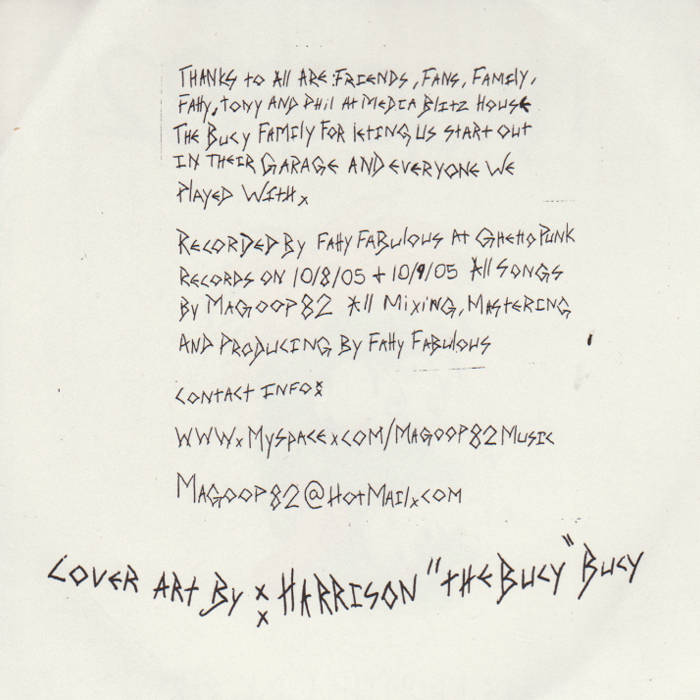 THANKS to All ARE FRIENDS, FANS, FAMILY,
FATTY, TONY AND PHIL AT MEDIA BLITZ HOUSE
THE BUCY FAMILY FOR lETING US START OUT
IN THEIR GARAGE AND EVERYONE WE
PlAYED WITHx
RECORDED BY FATTY FABULOUS AT GHETTO PUNK
RECORDS ON 10/8/05 + 10/9/05 All SONGS
BY MAGOOP82 All MIXING, MASTERING
AND PRODUCING BY FATTY FABULOUS
CONTACT INFO:
WWWxMYSPACExCOM/MAGOOP82MUSIC
MAGOOP82@HOTMAILxCOM
COVER ART BY : HARRISON "THE BUCY" BUCY